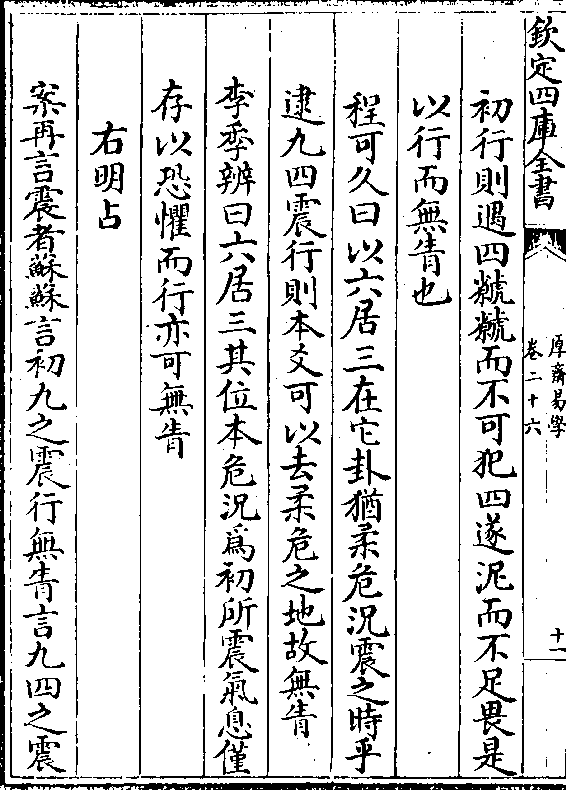 欽定四庫全書
厚齋易學
卷二十六
十一
初行則遇四虩虩而不可犯四遂泥而不足畏是
以行而無眚也
程可久曰以六居三在它卦猶柔危況震之時乎
逮九四震行則本爻可以去柔危之地故無眚
李季辨曰六居三其位本危況爲初所震氣息僅
存以恐懼而行亦可無眚
右明占
案再言震者蘇蘇言初九之震行無眚言九四之震